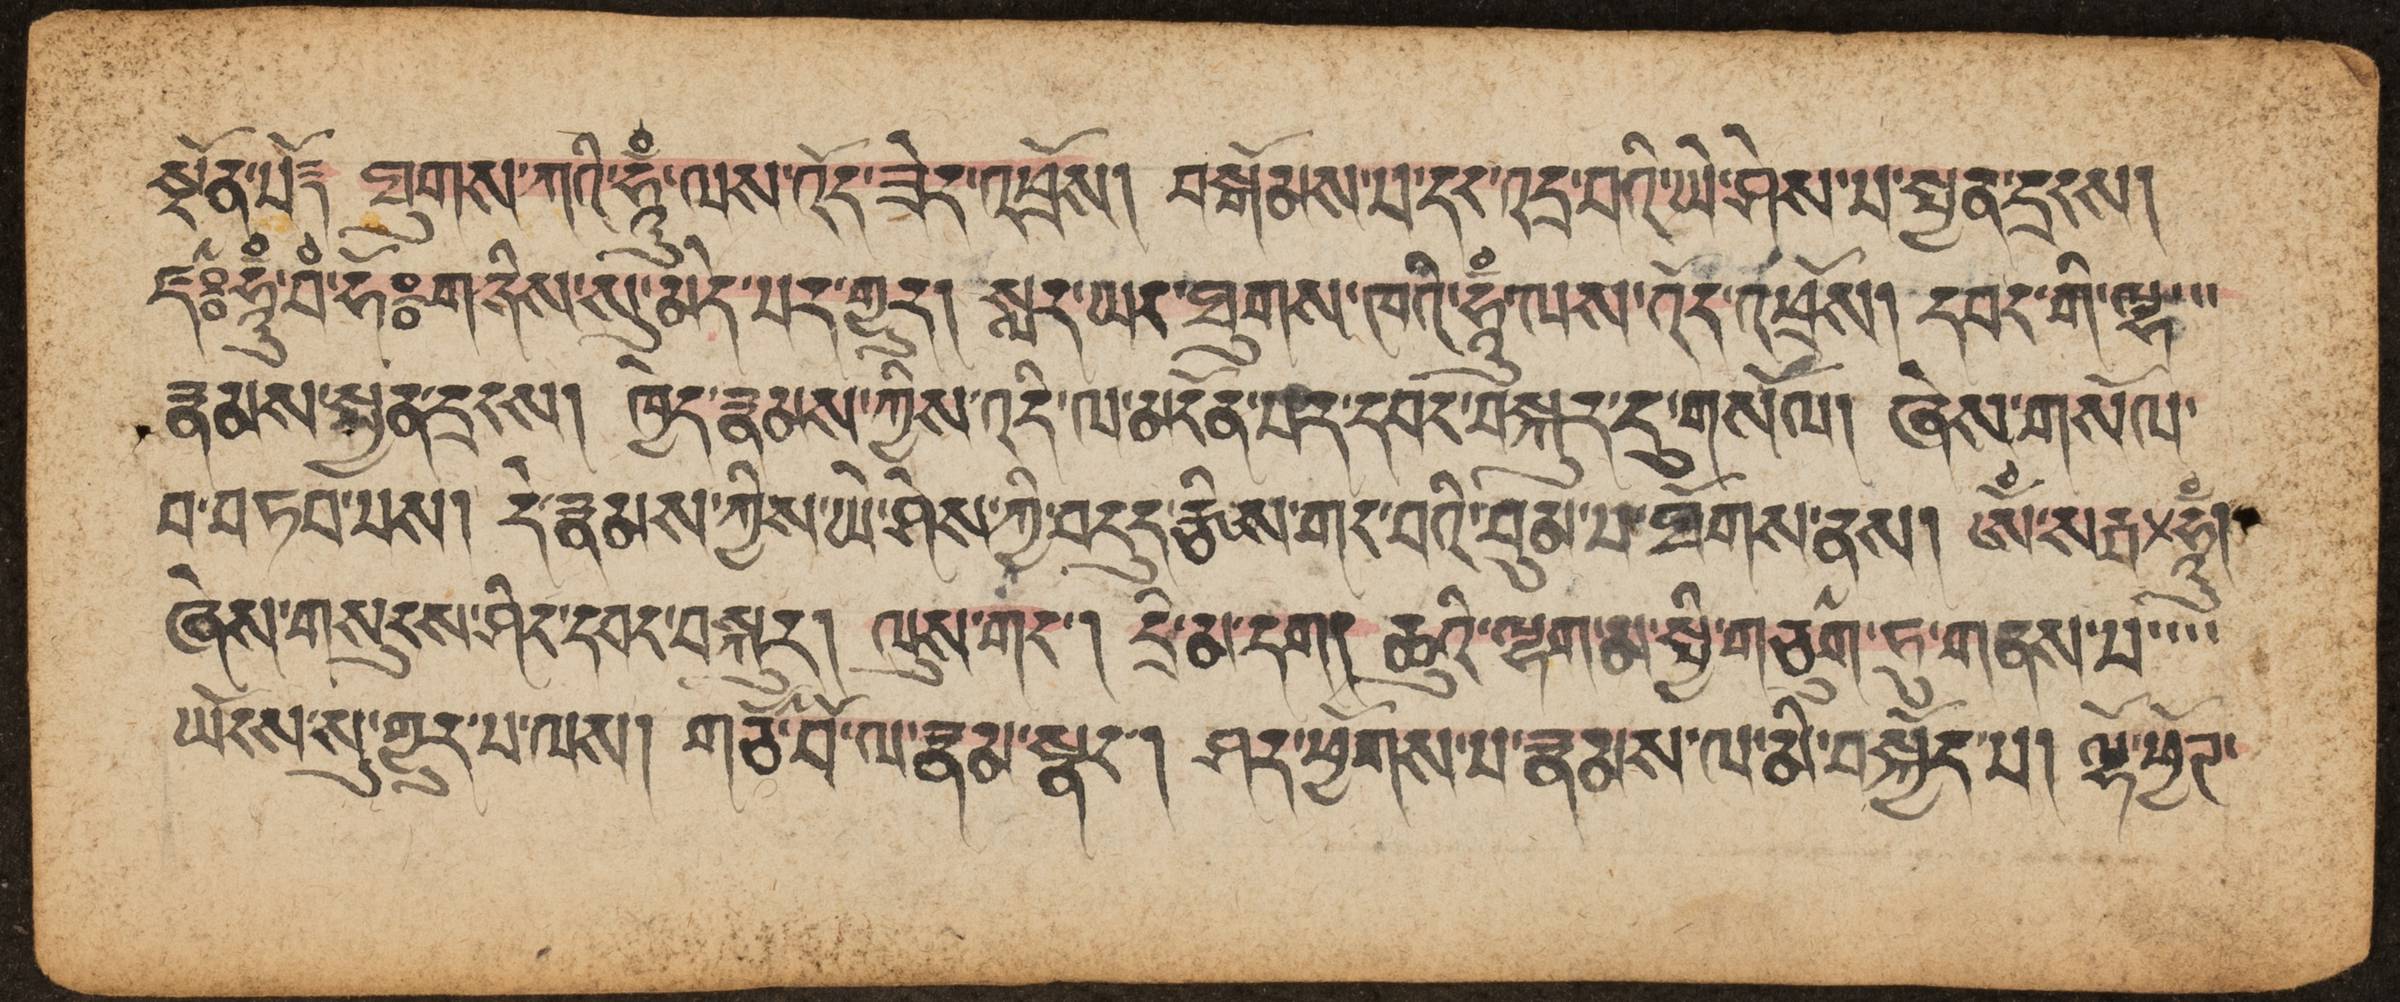 སྔོན་པོ༔ ཐུགས་ཀའི་ཧཱུྃ་ལས་འོད་ཟེར་འཕྲོས། བསྒོམས་པ་དང་འདྲ་བའི་ཡེ་ཤེས་པ་སྤྱན་དྲངས།
ཛཿཧཱུྃ་བྃ་ཧོཿ གཉིས་སུ་མེད་པར་གྱུར། སླར་ཡང་ཐུགས་ཁའི་ཧཱུྃ་ལས་འོད་འཕྲོས། དབང་གི་ལྷ་
རྣམས་སྤྱན་དྲངས། ཁྱེད་རྣམས་ཀྱིས་འདི་ལ་མངོན་པར་དབང་བསྐུར་དུ་གསོལ། ཞེས་གསོལ་
བ་བཏབ་པས། དེ་རྣམས་ཀྱིས་ཡེ་ཤེས་ཀྱི་བདུད་རྩིས་གང་བའི་བུམ་པ་ཐོགས་ནས། ཨོཾ་སརྦ་ཧཱུྃ།
ཞེས་གསུངས་ཤིང་དབང་བསྐུར། ལུས་གང་། དྲི་མ་དག། ཆུའི་ལྷག་མ་སྤྱི་གཙུག་ཏུ་གནས་པ་
ཡོངས་སུ་གྱུར་པ་ལས། གཙོ་བོ་ལ་རྣམ་སྣང་། ཤར་ཕྱོགས་པ་རྣམས་ལ་མི་བསྐྱོད་པ། ལྷོ་ཕྱོ